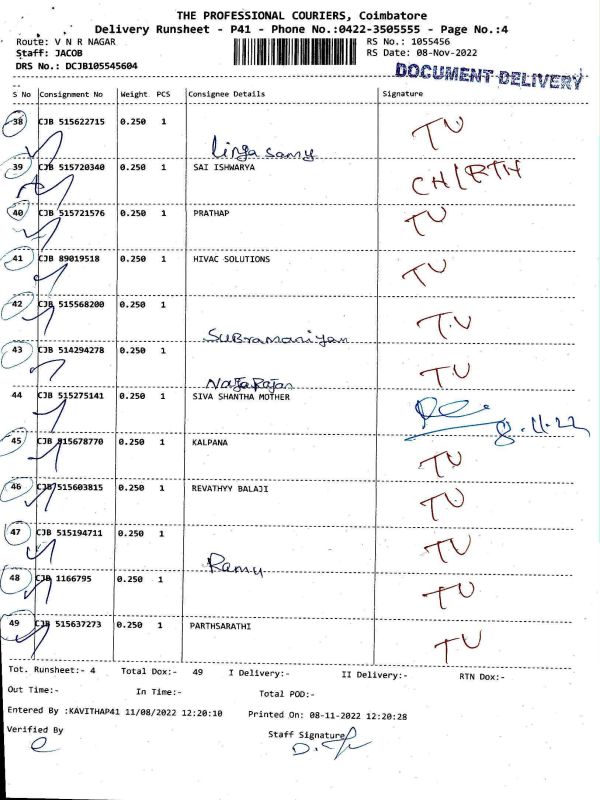 THE PROFESSIONAL COURIERS, Coimbatore
Delivery Runsheet - P41 - Phone No.:0422-3505555 - Page No.:4
Route: V N R NAGAR RS No.: 1055456
Staff: JACOB RS Date: 08-Nov-2022
DRS No.: DCJB105545604
DOCUMENT DELIVERY
S No Consignment No Weight PCS Consignee Details Signature
38 CJB 515622715 0.250 1 TU
Lingasamy
39 CJB 515720340 0.250 1 SAI ISHWARYA CH/RTH
40 CJB 515721576 0.250 1 PRATHAP TU
41 CJB 89019518 0.250 1 HIVAC SOLUTIONS TU
42 CJB 515568200 0.250 1 T.U
SUBramaniyan
43 CJB 514294278 0.250 1 TU
NagaRajan
44 CJB 515275141 0.250 1 SIVA SHANTHA MOTHER 8.11.22
45 CJB 515678770 0.250 1 KALPANA TU
46 CJB 515603815 0.250 1 REVATHYY BALAJI TU
47 CJB 515194711 0.250 1 TU
Ramu
48 CJB 1166795 0.250 1 TU
49 CJB 515637273 0.250 1 PARTHSARATHI TU
Tot. Runsheet:- 4 Total Dox:- 49 I Delivery:- II Delivery:- RTN Dox:-
Out Time:- In Time:- Total POD:-
Entered By :KAVITHAP41 11/08/2022 12:20:10 Printed On: 08-11-2022 12:20:28
Verified By Staff Signature